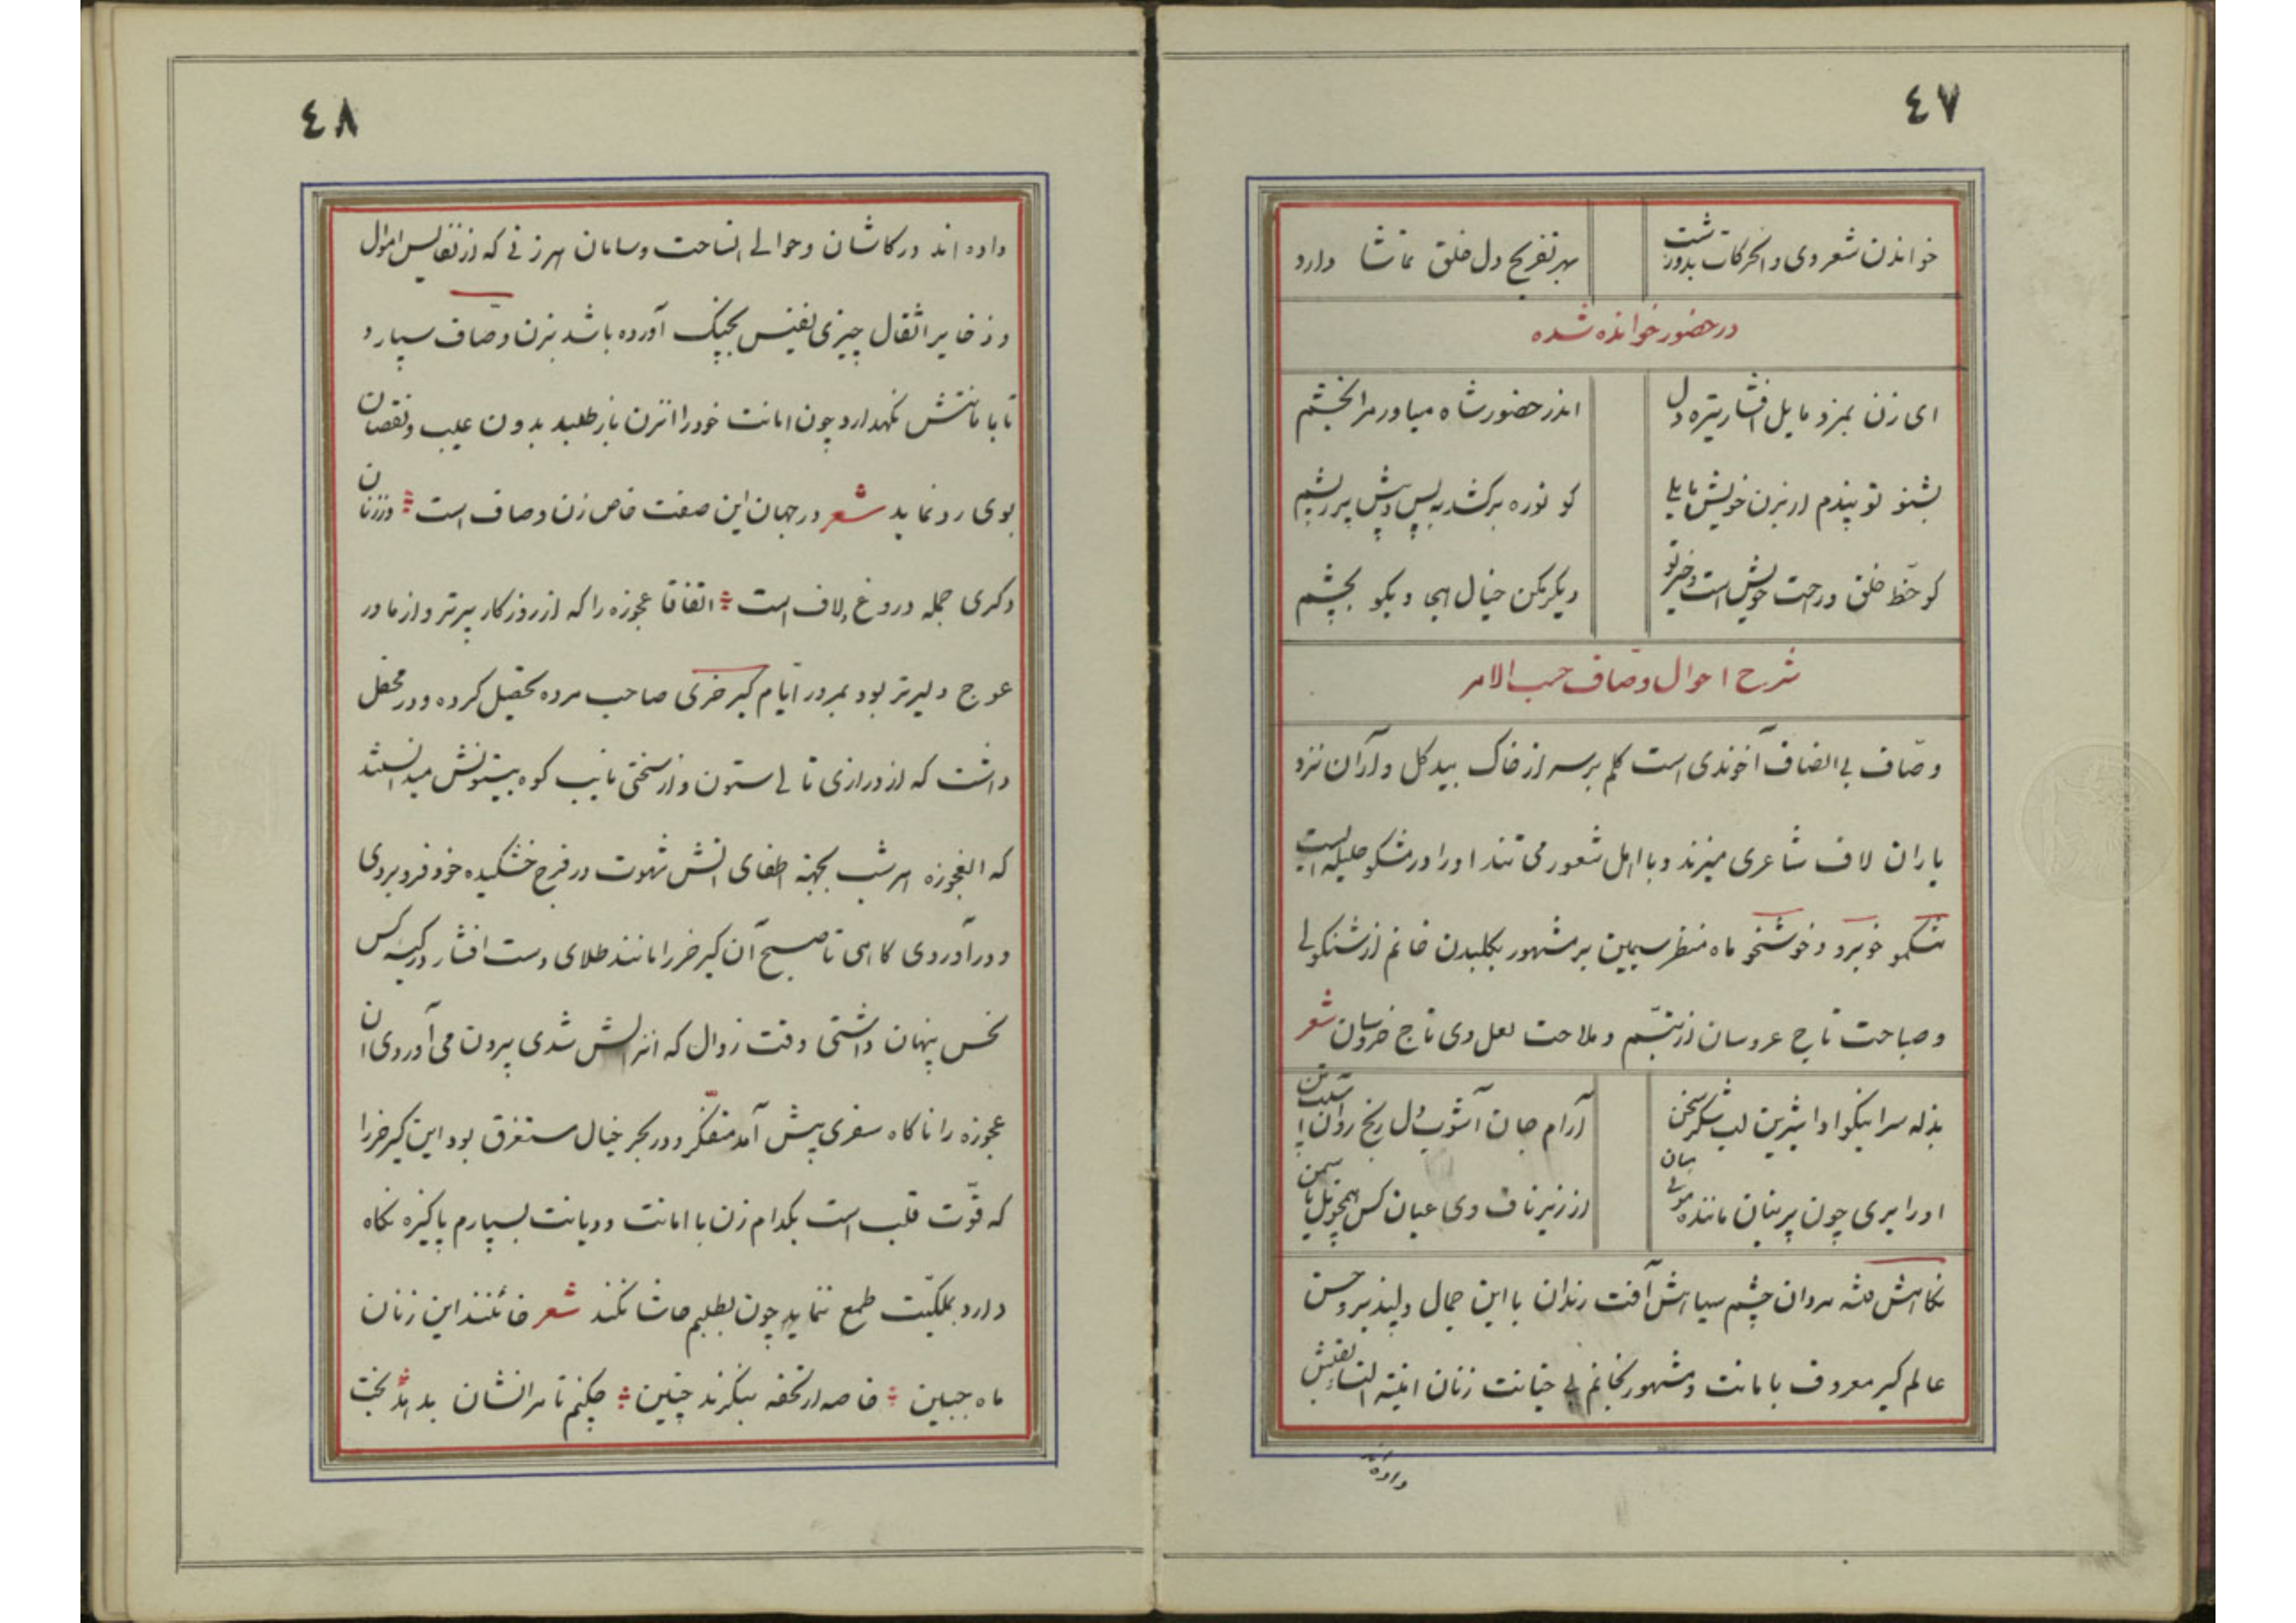 ٤٧
خواندن شعر وی و الحرکات بدو زشت
بهر تفریح دل خلق تماشا دارد
در حضور خوانده شده
ای زن بمزد مایل افشار تیره دل
اندر حضور شاه میاور مرا بخشم
بشنو تو پندم ار بزن خویش مایلی
کو نوره برکشد به پس و پیش پر ز پشم
کو حظ خلق و راحت خویش است و خیر تو
دیگر مکن خیال ابجی و بگو بچشم
شرح احوال وصّاف حسب الامر
وصّاف بی انصاف آخوندی است کلم بر سر از خاک بیدگل و آران نزد
یاران لاف شاعری میزند و با اهل شعور می تند او را در مشکو حلیله ایست
مشکمو خوبرو و خوشخو ماه منظر سیمین بر مشهور بگلبدن خانم از شنکولی
و صباحت تاج عروسان از تبسّم و ملاحت لعل وی تاج خروسان شعر
بذله سرا نیکو ادا شیرین لب شکر سخن
آرام جان آشوب دل رنج روان
او را بری چون پرنیان مانند موئی میان
از زیر ناف وی عیان کس همچو تل یاسمن
نکاهش فتنه مردان چشم سیاهش آفت رندان با این جمال دلپذیر و حسن
عالم گیر معروف بامانت و مشهور بخانم بی خیانت زنان
داده اند
٤٨
داده اند در کاشان و حوالی انساحت و سامان هر زنی که از نفایس اموال
و ذخایر اثقال چیزی نفیس بچنک آورده باشد بزن وصّاف سپارد
تا بامانتش نکهدارد چون امانت خود را از زن باز طلبد بدون عیب و نقصان
بوی رد نماید شعر در جهان این صفت خاص زن وصاف است و ز زنان
دکری جمله دروغ و لاف است اتفاقا عجوزه را که از روزکار پیرتر و از مادر
عوج دلیرتر بود بمرور ایّام کیر خری صاحب مرده تحصیل کرده و در محفل
داشت که از درازی تالی ستون و از سختی نایب کوه بیستونش میدانستند
که العجوزه هر شب بجهة اطفای اتش شهوت در فرج خشکیده خود فرو بردی
و در آوردی کاهی تا صبح آن کیر خر را مانند طلای دست افشار در کیسه کس
نحس پنهان داشتی وقت زوال که انزالش شدی بیرون می آوردی ان
عجوزه را ناکاه سفری پیش آمد متفکّر و در بحر خیال مستغرق بود این کیر خر را
که قوّت قلب است بکدام زن با امانت و دیانت بسپارم پاکیزه نکاه
دارد بملکیّت طمع ننماید چون بطلبم حاشا نکند شعر خائنند این زنان
ماه جبین خاصه ار تحفه بنکرند چنین چکنم تا مرا نشان بدهند بخت